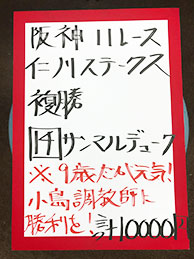 阪神11レース
仁川ステークス
複勝
14サンマルデューク
※9歳だが元気!
小島調教師に
勝利を!計10000円